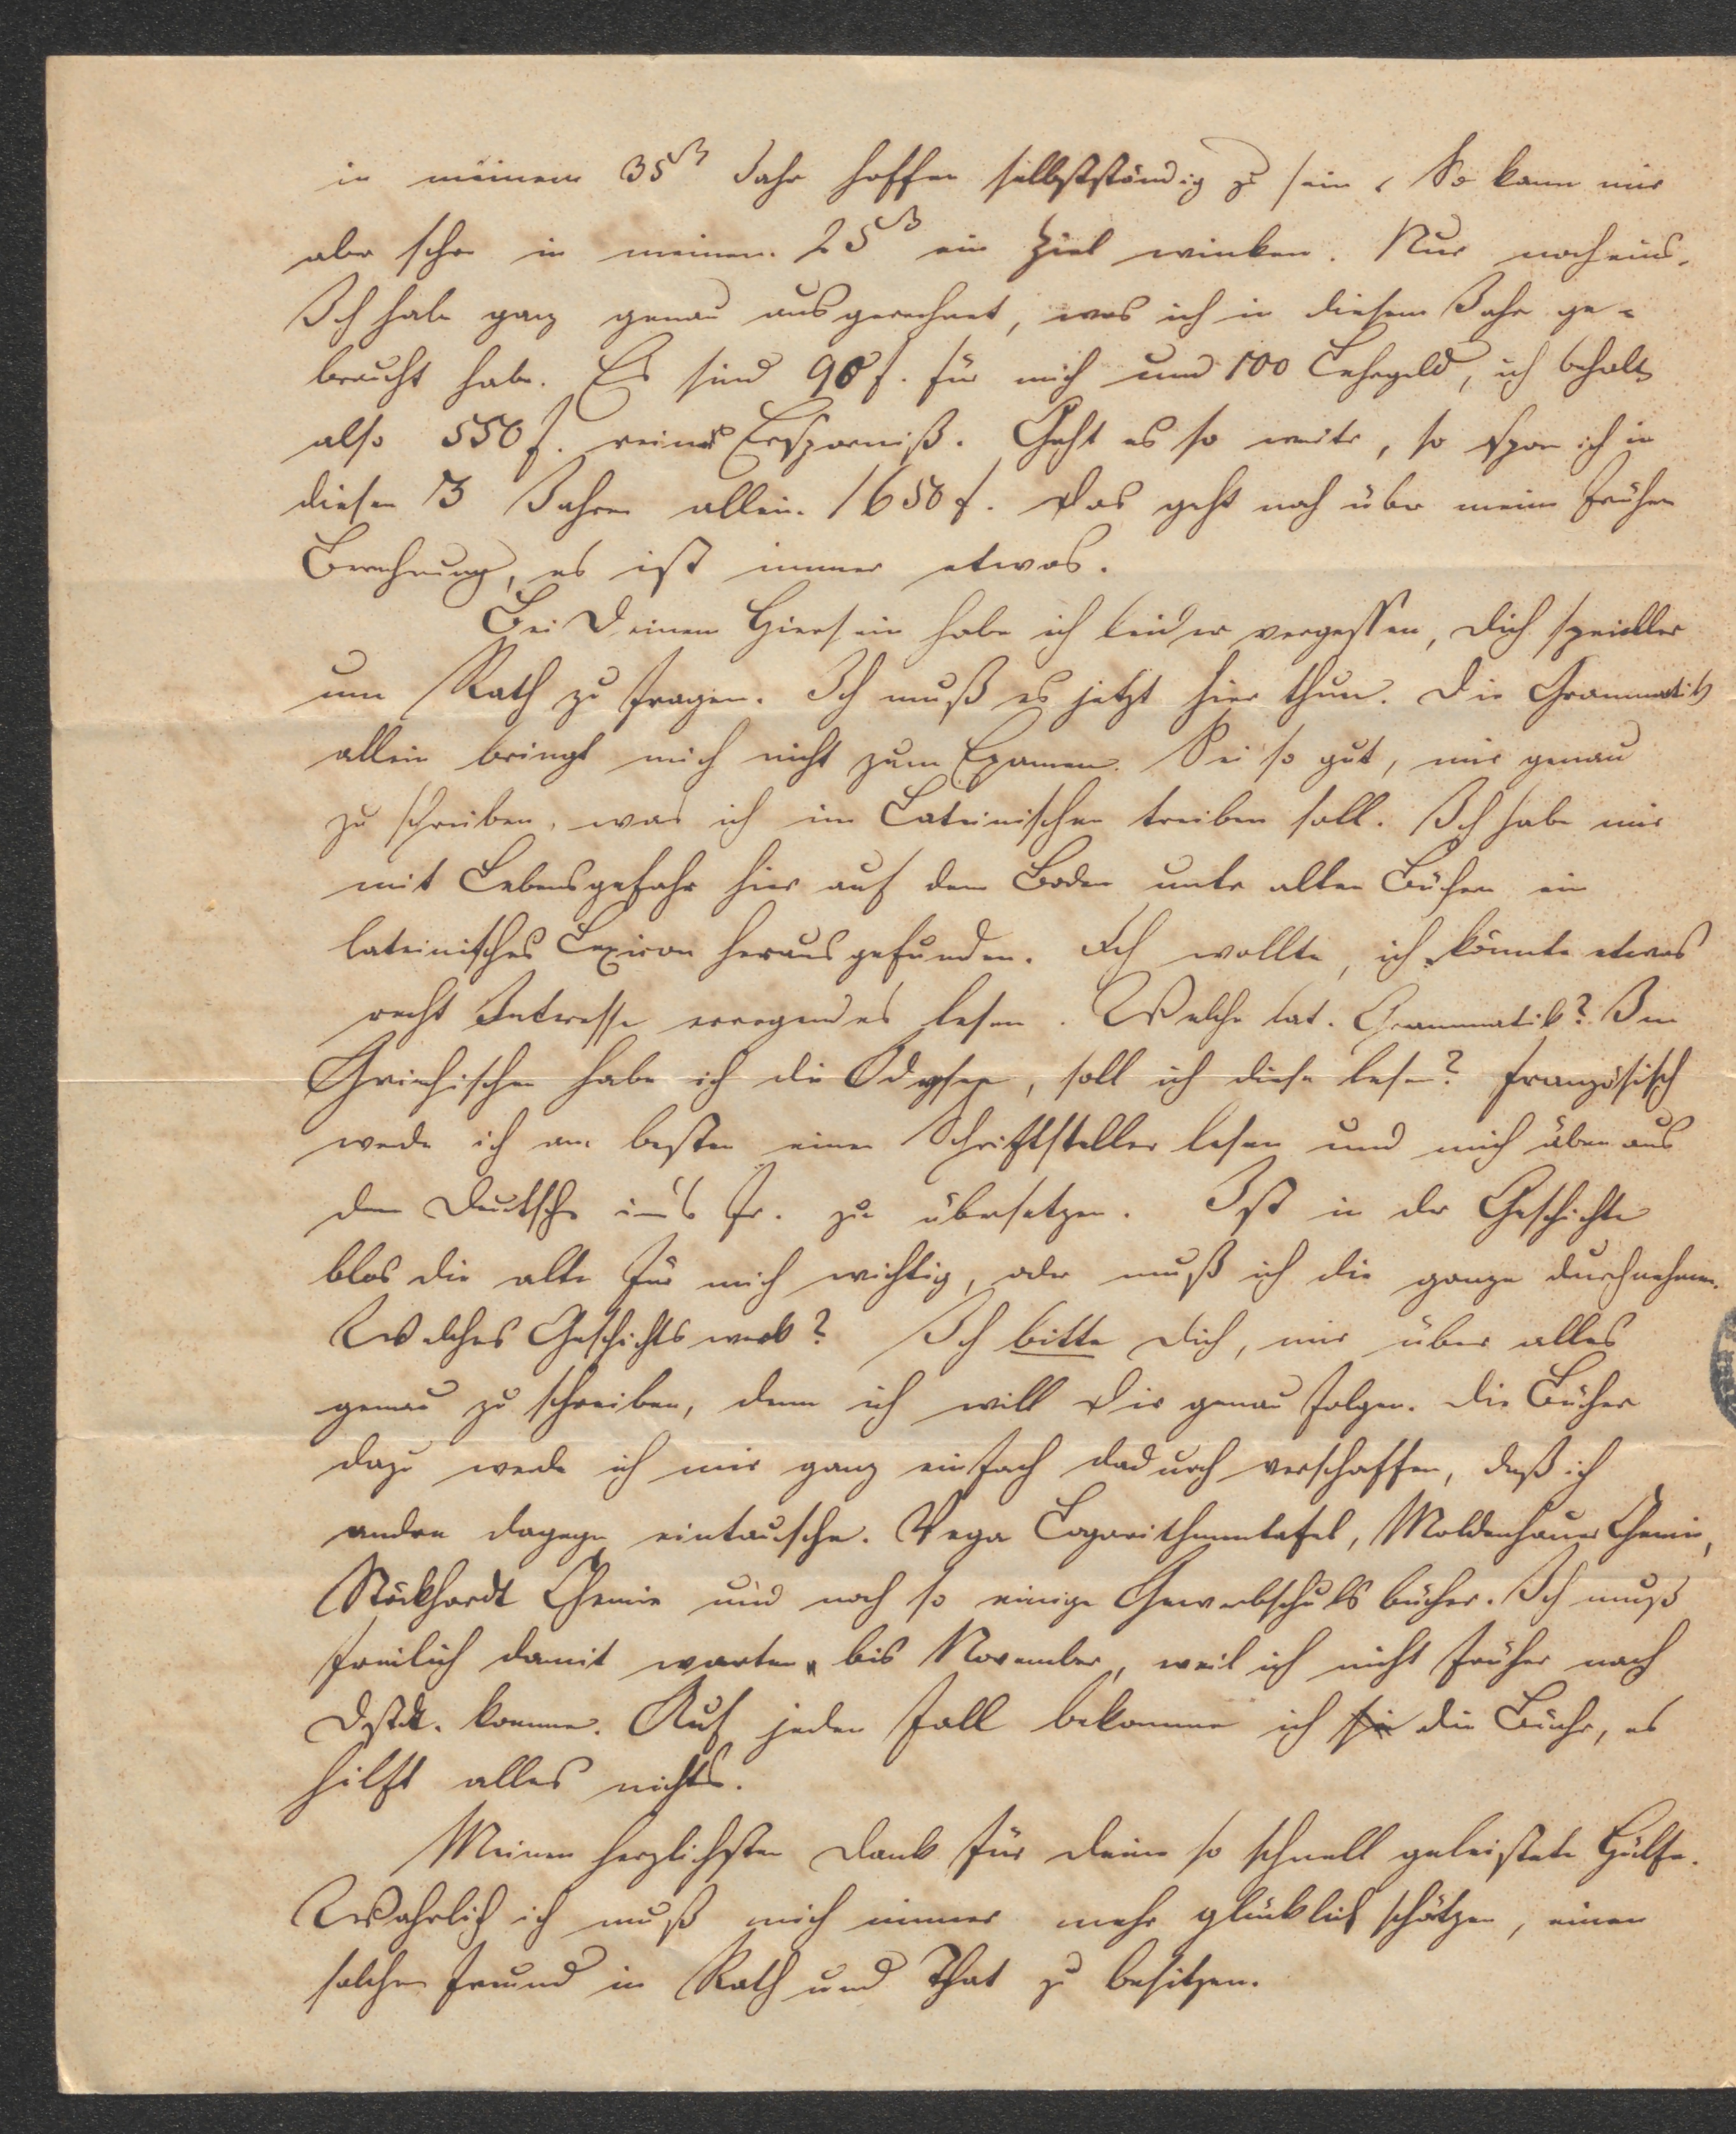 in meinem 35ten Jahr hoffen selbstständig zu sein. So kann mir
aber schon in meinem 25ten ein Ziel winken. Nur noch eins.
Ich habe ganz genau ausgerechnet, was ich in diesem Jahr ge-
braucht habe. Es sind 90 f. für mich und 100 Lehrgeld, ich behalte
also 550 f. reine Ersparniß. Geht es so weiter, so spar ich in
diesen 3 Jahren allein 1650 f. Das geht noch über meine frühere
Berechnung, es ist immer etwas.
Bei Deinem Hiersein habe ich leider vergessen, Dich spezieller
um Rath zu fragen. Ich muß es jetzt hier thun. Die Grammatik
allein bringt mich nicht zum Examen. Sei so gut, mir genau
zu schreiben, was ich im Lateinischen treiben soll. Ich habe mir
mit Lebensgefahr hier auf dem Boden unter alten Büchern ein
lateinisches Lexicon herausgefunden. Ich wollte, ich könnte etwas
recht Interesse erregendes lesen. Welche lat. Grammatik? Im
Griechischen habe ich die Odyssee, soll ich diese lesen? Französisch
werde ich am besten einen Schriftsteller lesen und mich üben aus
dem Deutschen in's Fr. zu übersetzen. Ist in der Geschichte
blos die alte für mich wichtig, oder muß ich die ganze durchnehmen.
Welches Geschichtswerk? Ich bitte Dich, mir über alles
genau zu schreiben, denn ich will Dir genau folgen. Die Bücher
dazu werde ich mir ganz einfach dadurch verschaffen, daß ich
andre dagegen eintausche. Vega Logarithmentafel, Moldenhauer Chemie,
Stöckhardt Chemie und noch so einige Gewerbschulsbücher. Ich muß
freilich damit warten bis November, weil ich nicht früher nach
Dstdt. komme. Auf jeden Fall bekomme ich die Bücher, es
hilft alles nichts.
Meinen herzlichsten Dank für Deine so schnell geleistete Hülfe.
Wahrlich ich muß mich immer mehr glücklich schätzen, einen
solchen Freund in Rath und That zu besitzen.